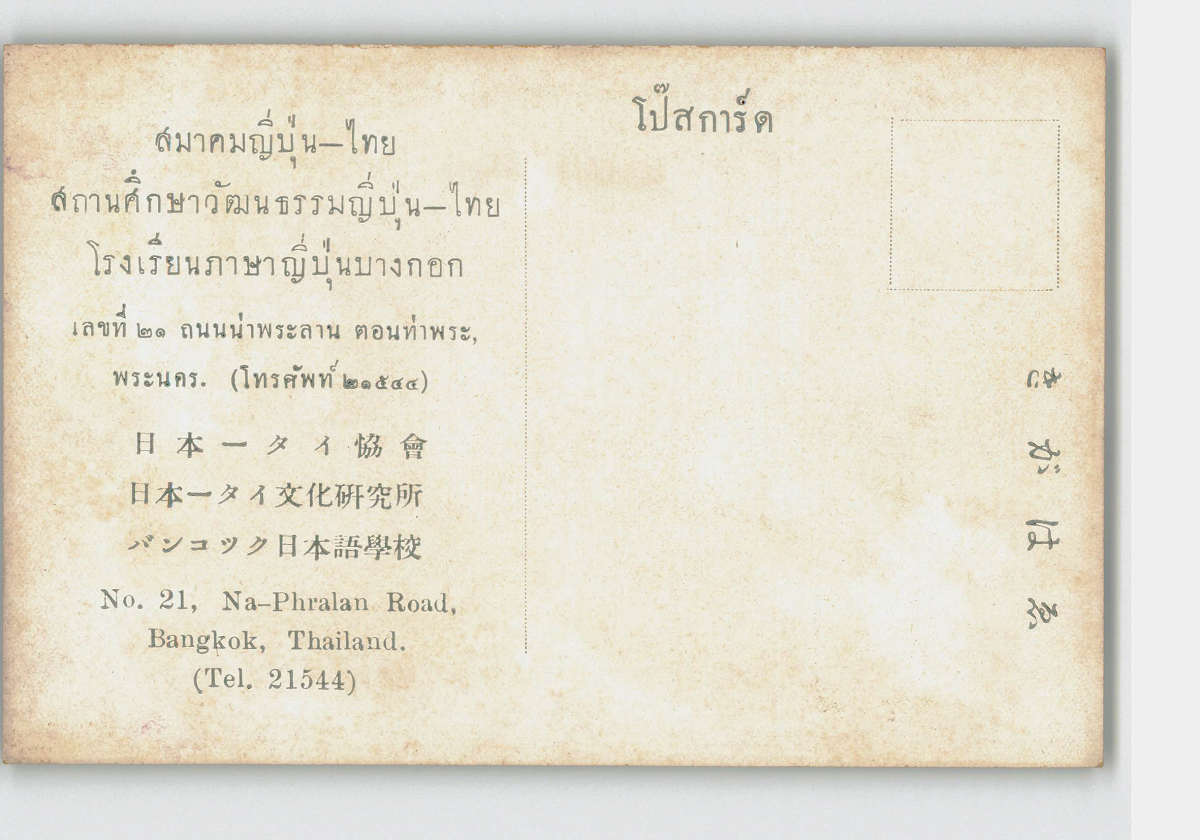 โป๊สการ์ด
สมาคมญี่ปุ่น—ไทย
สถานศึกษาวัฒนธรรมญี่ปุ่น—ไทย
โรงเรียนภาษาญี่ปุ่นบางกอก
เลขที่ ๒๑ ถนนน่าพระลาน ตอนท่าพระ,
พระนคร. (โทรศัพท์ ๒๑๕๔๔)
日本ータイ協會
日本ータイ文化研究所
バンコツク日本語學校
No. 21, Na-Phralan Road,
Bangkok, Thailand.
(Tel. 21544)
ゑはがき